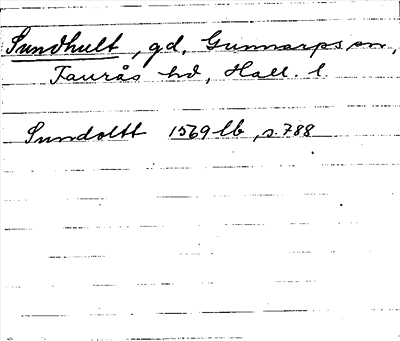 Sundhult, gd, Gunnarps sn,
Faurås hd, Hall. l.
Sundoltt 1569 lb, s. 788